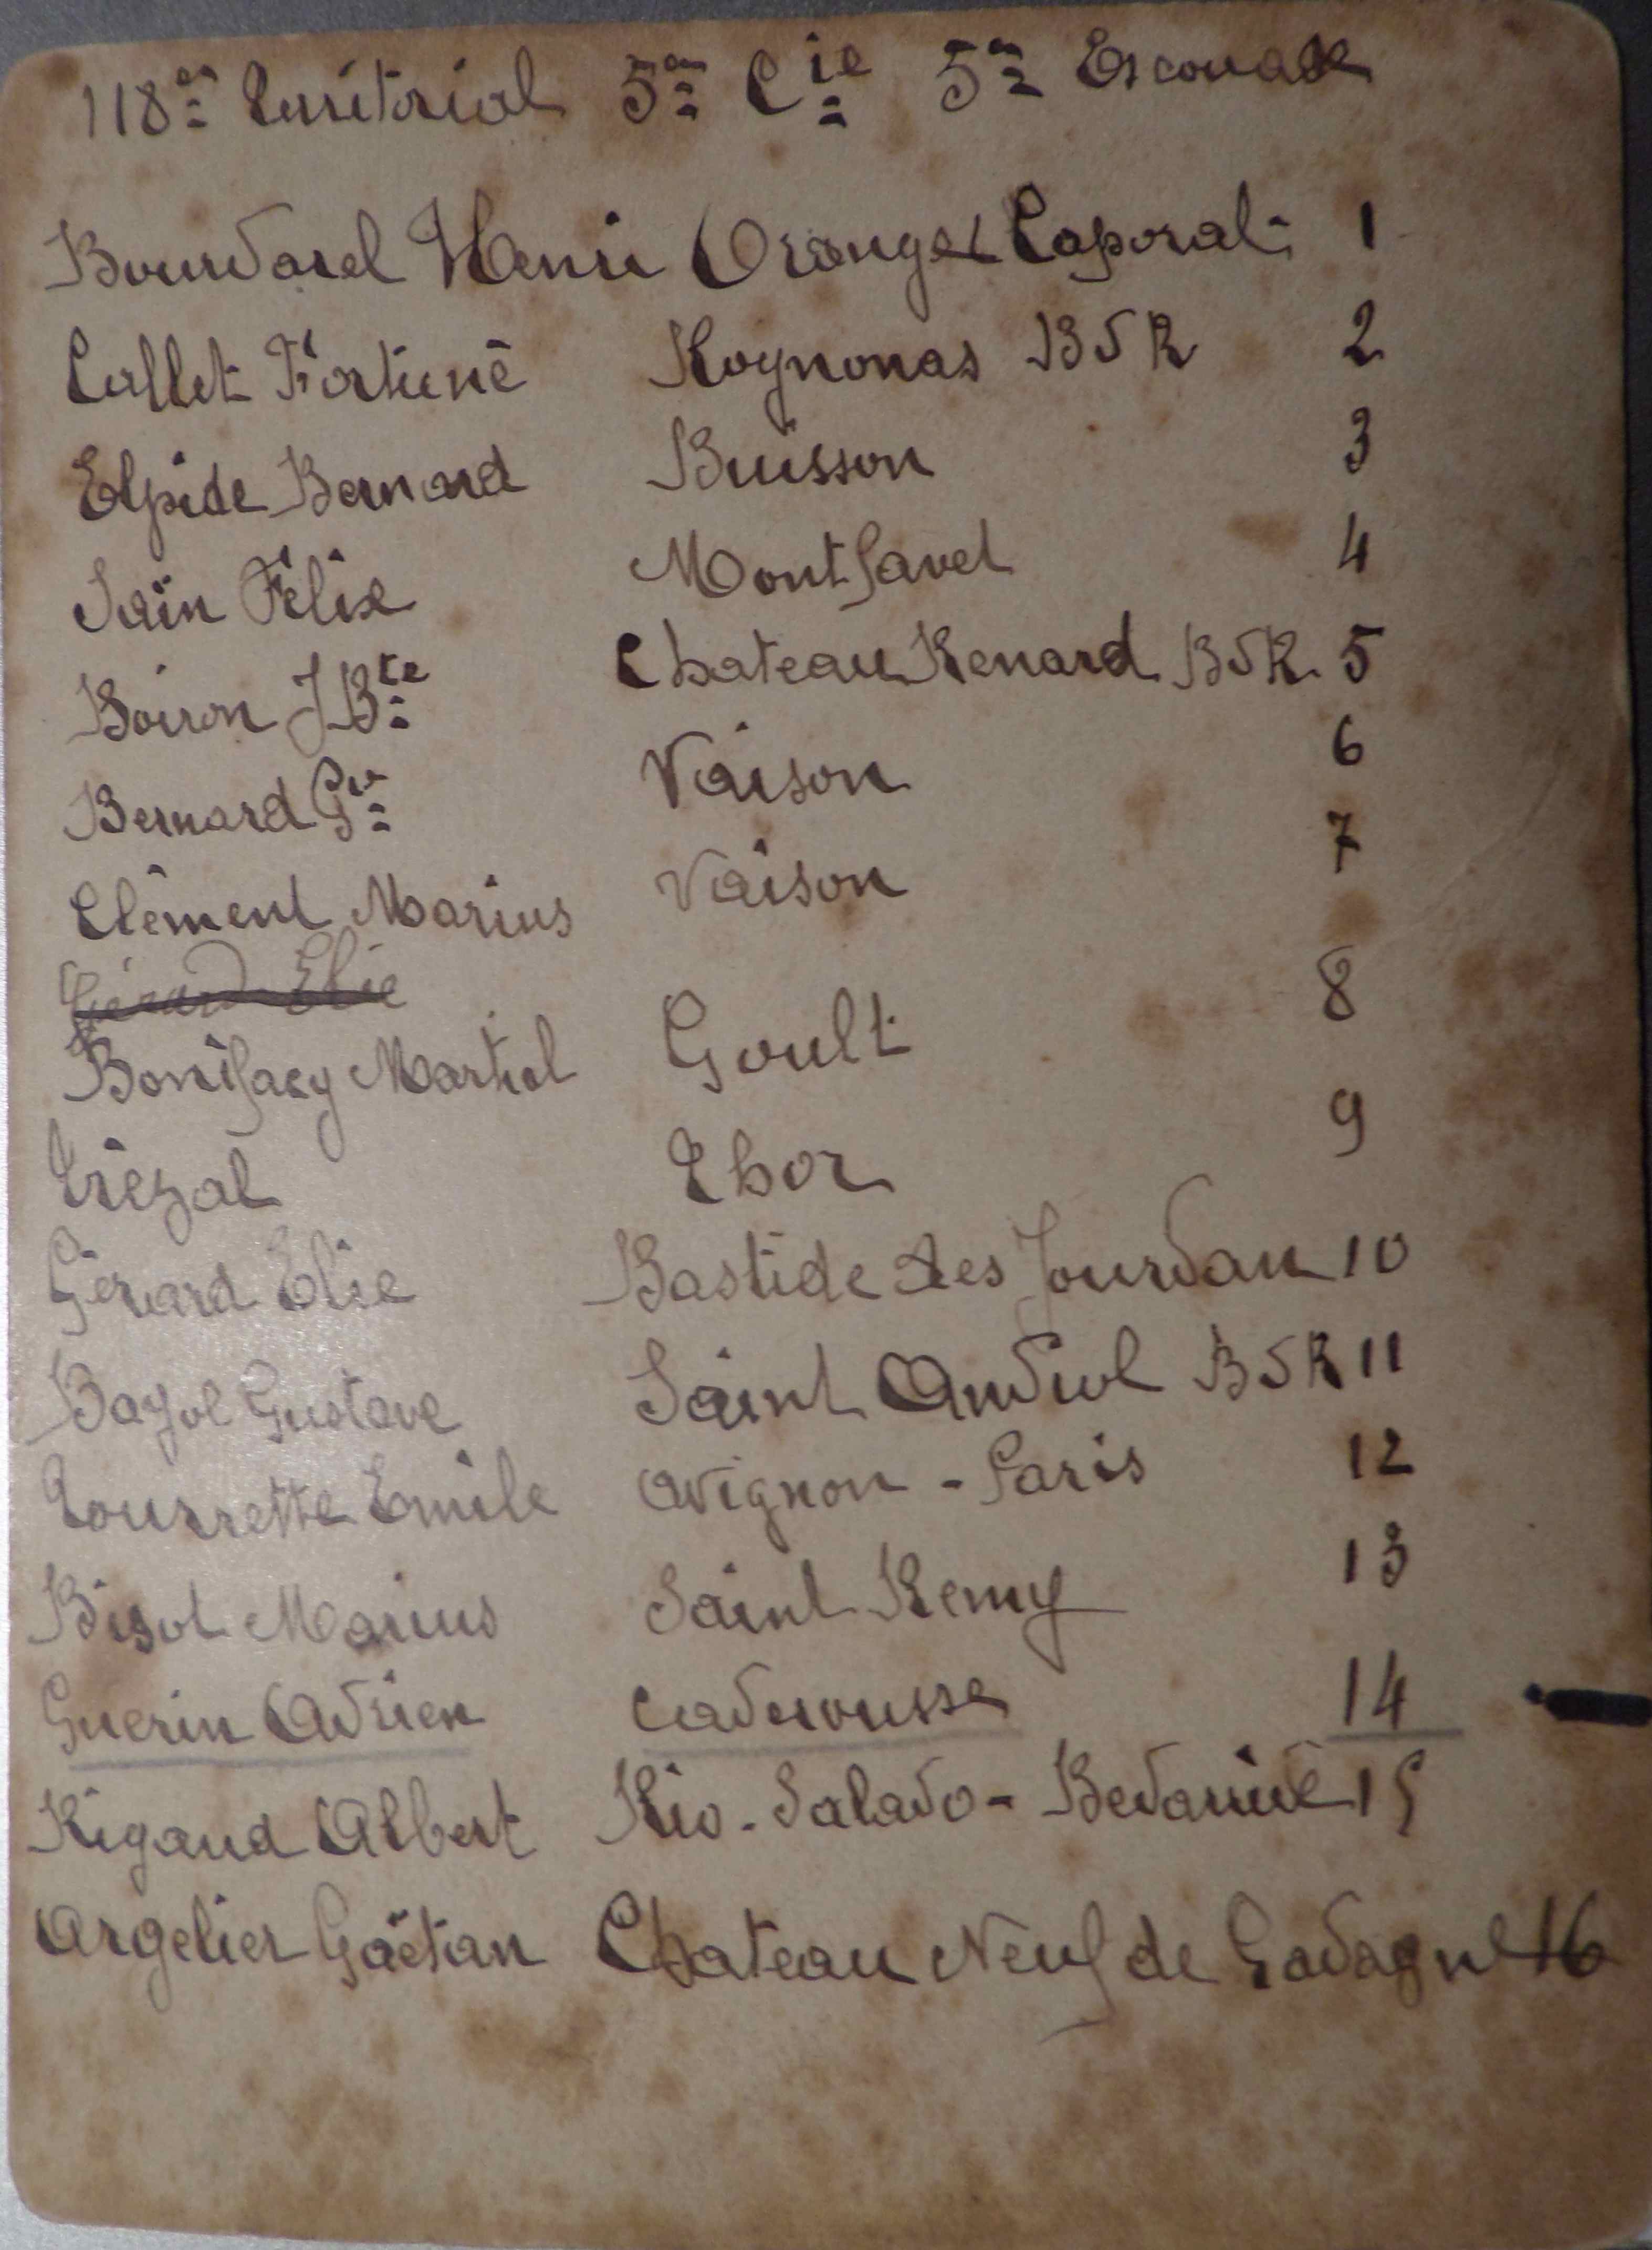 118e Territorial 5e Cie 5e Escouade
Bourdarel Henri Orange Caporal 1
Collet Fortuné Rognonas BDR 2
Elpide Bernard Buisson 3
Jaïn Félix Montfavet 4
Boiron J Bte Chateau Renard BDR 5
Bernard Gve Vaison 6
Clément Marius Vaison 7
Gérard Elie
Bonifacy Martial Goult 8
Trézal Thor 9
Gérard Elie Bastide des Jourdan 10
Bayol Gustave Saint Andiol BDR 11
Tourrette Emile Avignon - Paris 12
Marius Saint Remy 13
Guerin Adrien Caderousse 14
Rigaud Albert Rio-Salado - 15
Argelier Gaëtan Chateau Neuf de Gadagne 16